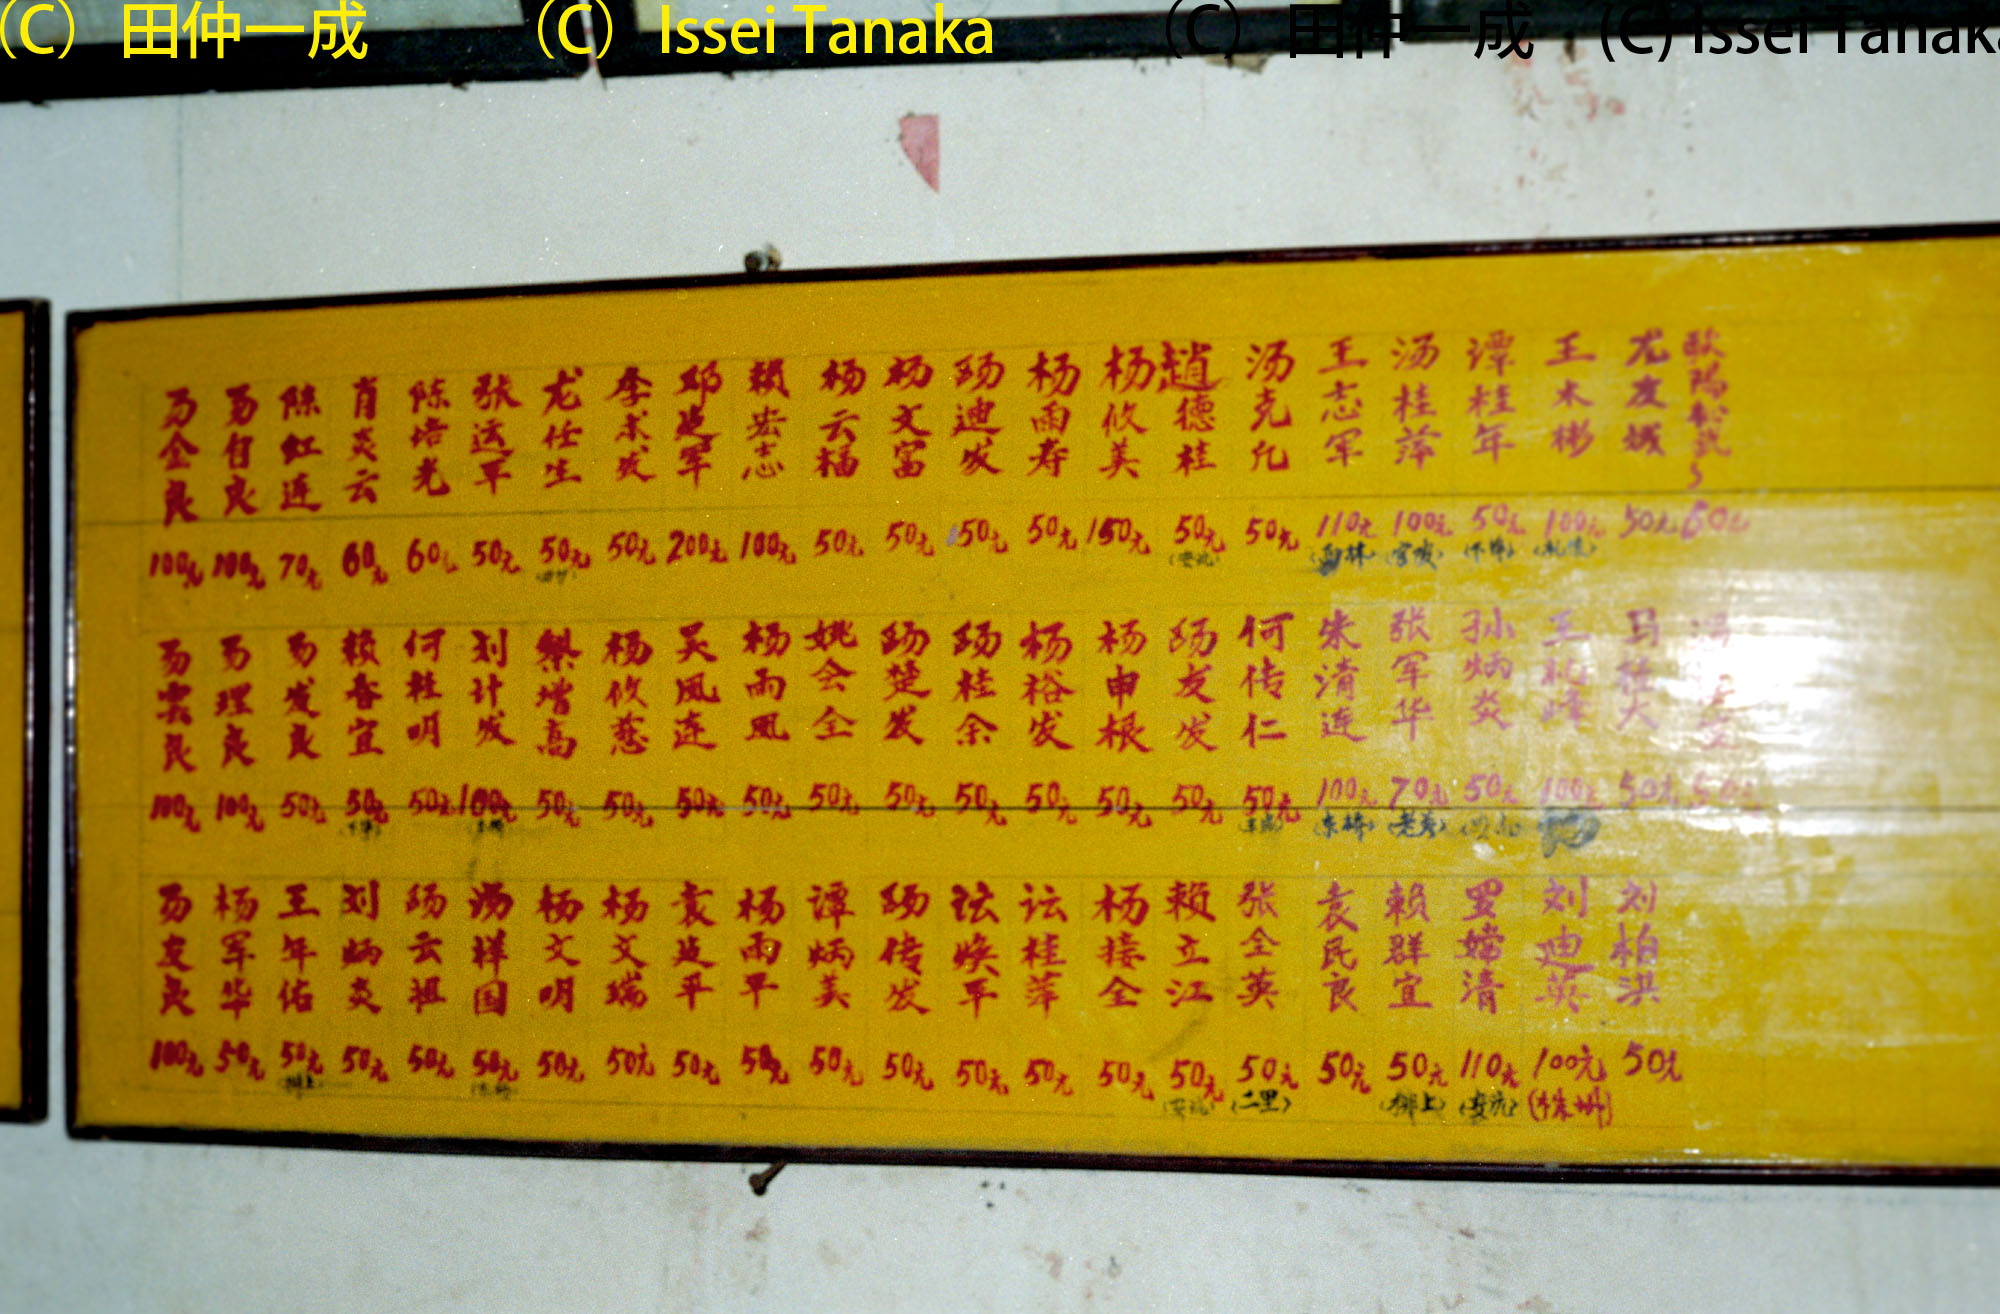 (C) 田仲一成 (C) Issei Tanaka (C) 田仲一成 (C) Issei Tanaka
易金良 易自良 陈红连 肖炎云 陈培光 张运平 龙仕生 李求发 邱建军 赖宏志 杨云福 杨文富 杨迪发 杨雨寿 杨攸美 趙德桂 汤克允 王志军 汤桂萍 谭桂年 王木彬 龙友城
100元 100元 70元 60元 60元 50元 50元 50元 200元 100元 50元 50元 50元 50元 150元 50元 50元 110元 100元 50元 100元 50元 60元
易雲良 易理良 易发良 赖春宜 何桂明 刘计发 黎增高 杨攸慈 吴凤连 杨雨凤 姚会全 杨楚发 杨桂余 杨裕发 杨申根 杨友发 何传仁 朱清连 张军华 孙炳炎
100元 100元 50元 50元 50元 100元 50元 50元 50元 50元 50元 50元 50元 50元 50元 50元 50元 100元 70元 50元 100元 50元 50元
易友良 杨军华 王年佑 刘炳炎 杨云祖 汤样国 杨文明 杨文瑞 袁建平 杨雨早 谭炳美 杨传发 坛焕平 坛桂萍 杨接全 赖立江 张全英 袁民良 赖群宜 罗嫦清 刘迪英 刘柏洪
100元 50元 50元 50元 50元 50元 50元 50元 50元 50元 50元 50元 50元 50元 50元 50元 50元 50元 50元 110元 100元 50元
(二里) (排上) (安沅) (株州)